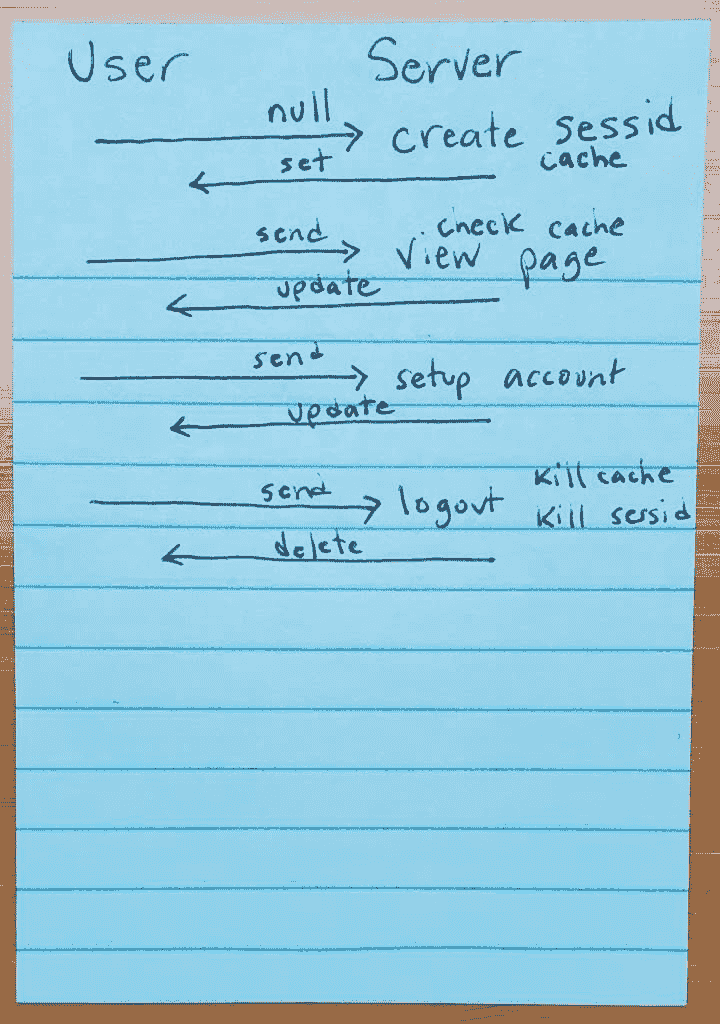 User Server
null
create sessid
set cache
send check cache
view page
update
send
setup account
update
send logout kill cache
kill sessid
delete